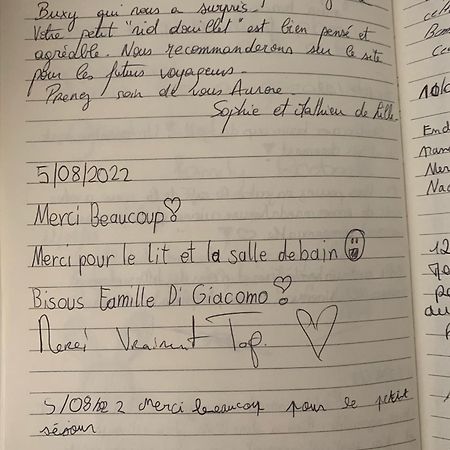 Buxy qui nous a surpris !
Votre petit "nid douillet" est bien pensé et
agréable. Nous recommanderons sur le site
pour les futurs voyageurs.
Prenez soin de vous Aurore.
Sophie et Mathieu de Lille.
5/08/2022
Merci Beaucoup
Merci pour le lit et la salle de bain
Bisous Famille Di Giacomo
Merci Vraiment Top.
5/08/22 2 Merci beaucoup pour le petit
séjour